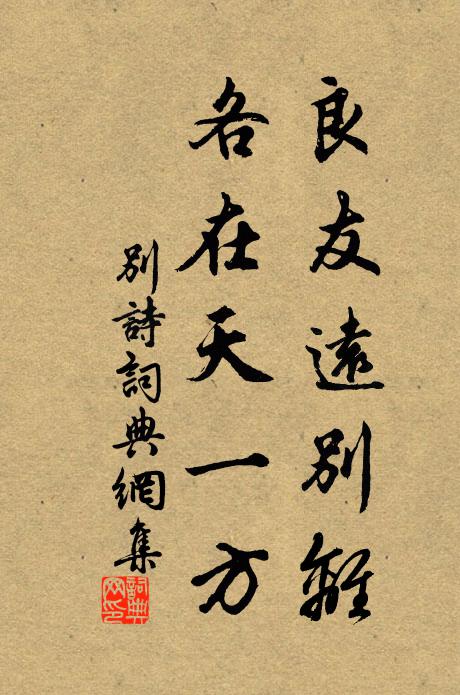 良友遠別離
各在天一方
別詩詞典網集
詞典
网印